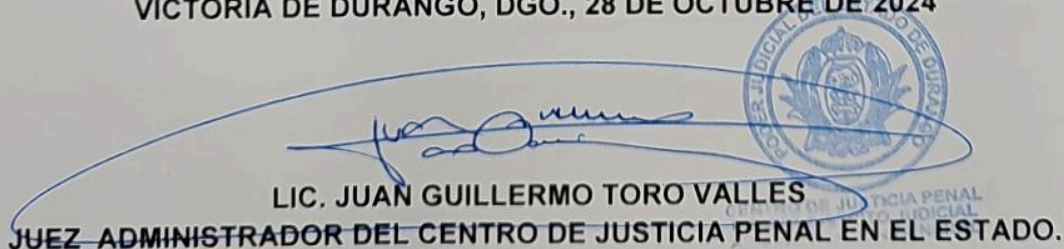 VICTORIA DE DURANGO, DGO., 28 DE OCTUBRE DE 2024
PODER JUDICIAL DEL ESTADO DE DURANGO
LIC. JUAN GUILLERMO TORO VALLES
CENTRO DE JUSTICIA PENAL
JUDICIAL
JUEZ ADMINISTRADOR DEL CENTRO DE JUSTICIA PENAL EN EL ESTADO.